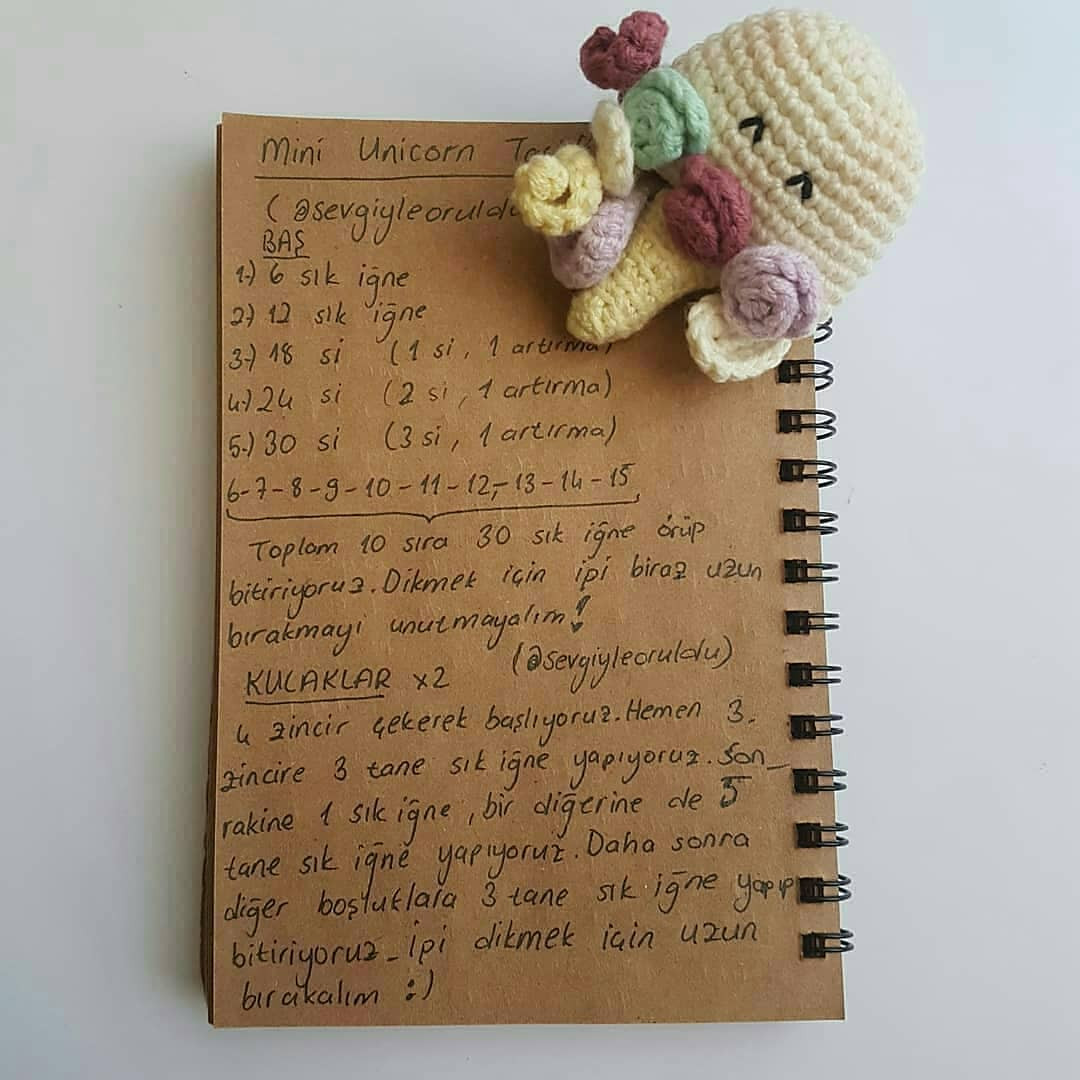 Mini Unicorn
(@sevgiyleoruldu
BAŞ
1-) 6 sık iğne
2-) 12 sık iğne
3-) 18 si (1 si, 1 artırma)
4-) 24 si (2 si, 1 artırma)
5-) 30 si (3 si, 1 artırma)
6-7-8-9-10-11-12-13-14-15
Toplam 10 sıra 30 sık iğne örüp
bitiriyoruz. Dikmek için ipi biraz uzun
bırakmayı unutmayalım!
(@sevgiyleoruldu)
KULAKLAR x2
4 zincir çekerek başlıyoruz. Hemen 3.
zincire 3 tane sık iğne yapıyoruz. Son_
rakine 1 sık iğne, bir diğerine de 5
tane sık iğne yapıyoruz. Daha sonra
diğer boşluklara 3 tane sık iğne yapıp
bitiriyoruz_ İpi dikmek için uzun
bırakalım :)